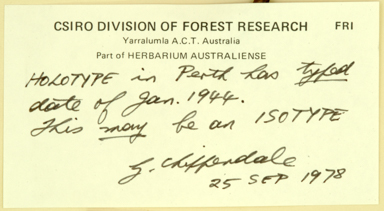 CSIRO DIVISION OF FOREST RESEARCH FRI
Yarralumla A.C.T. Australia
Part of HERBARIUM AUSTRALIENSE
HOLOTYPE in Perth has typed
date of Jan. 1944.
This may be an ISOTYPE
G. Chippendale
25 SEP 1978